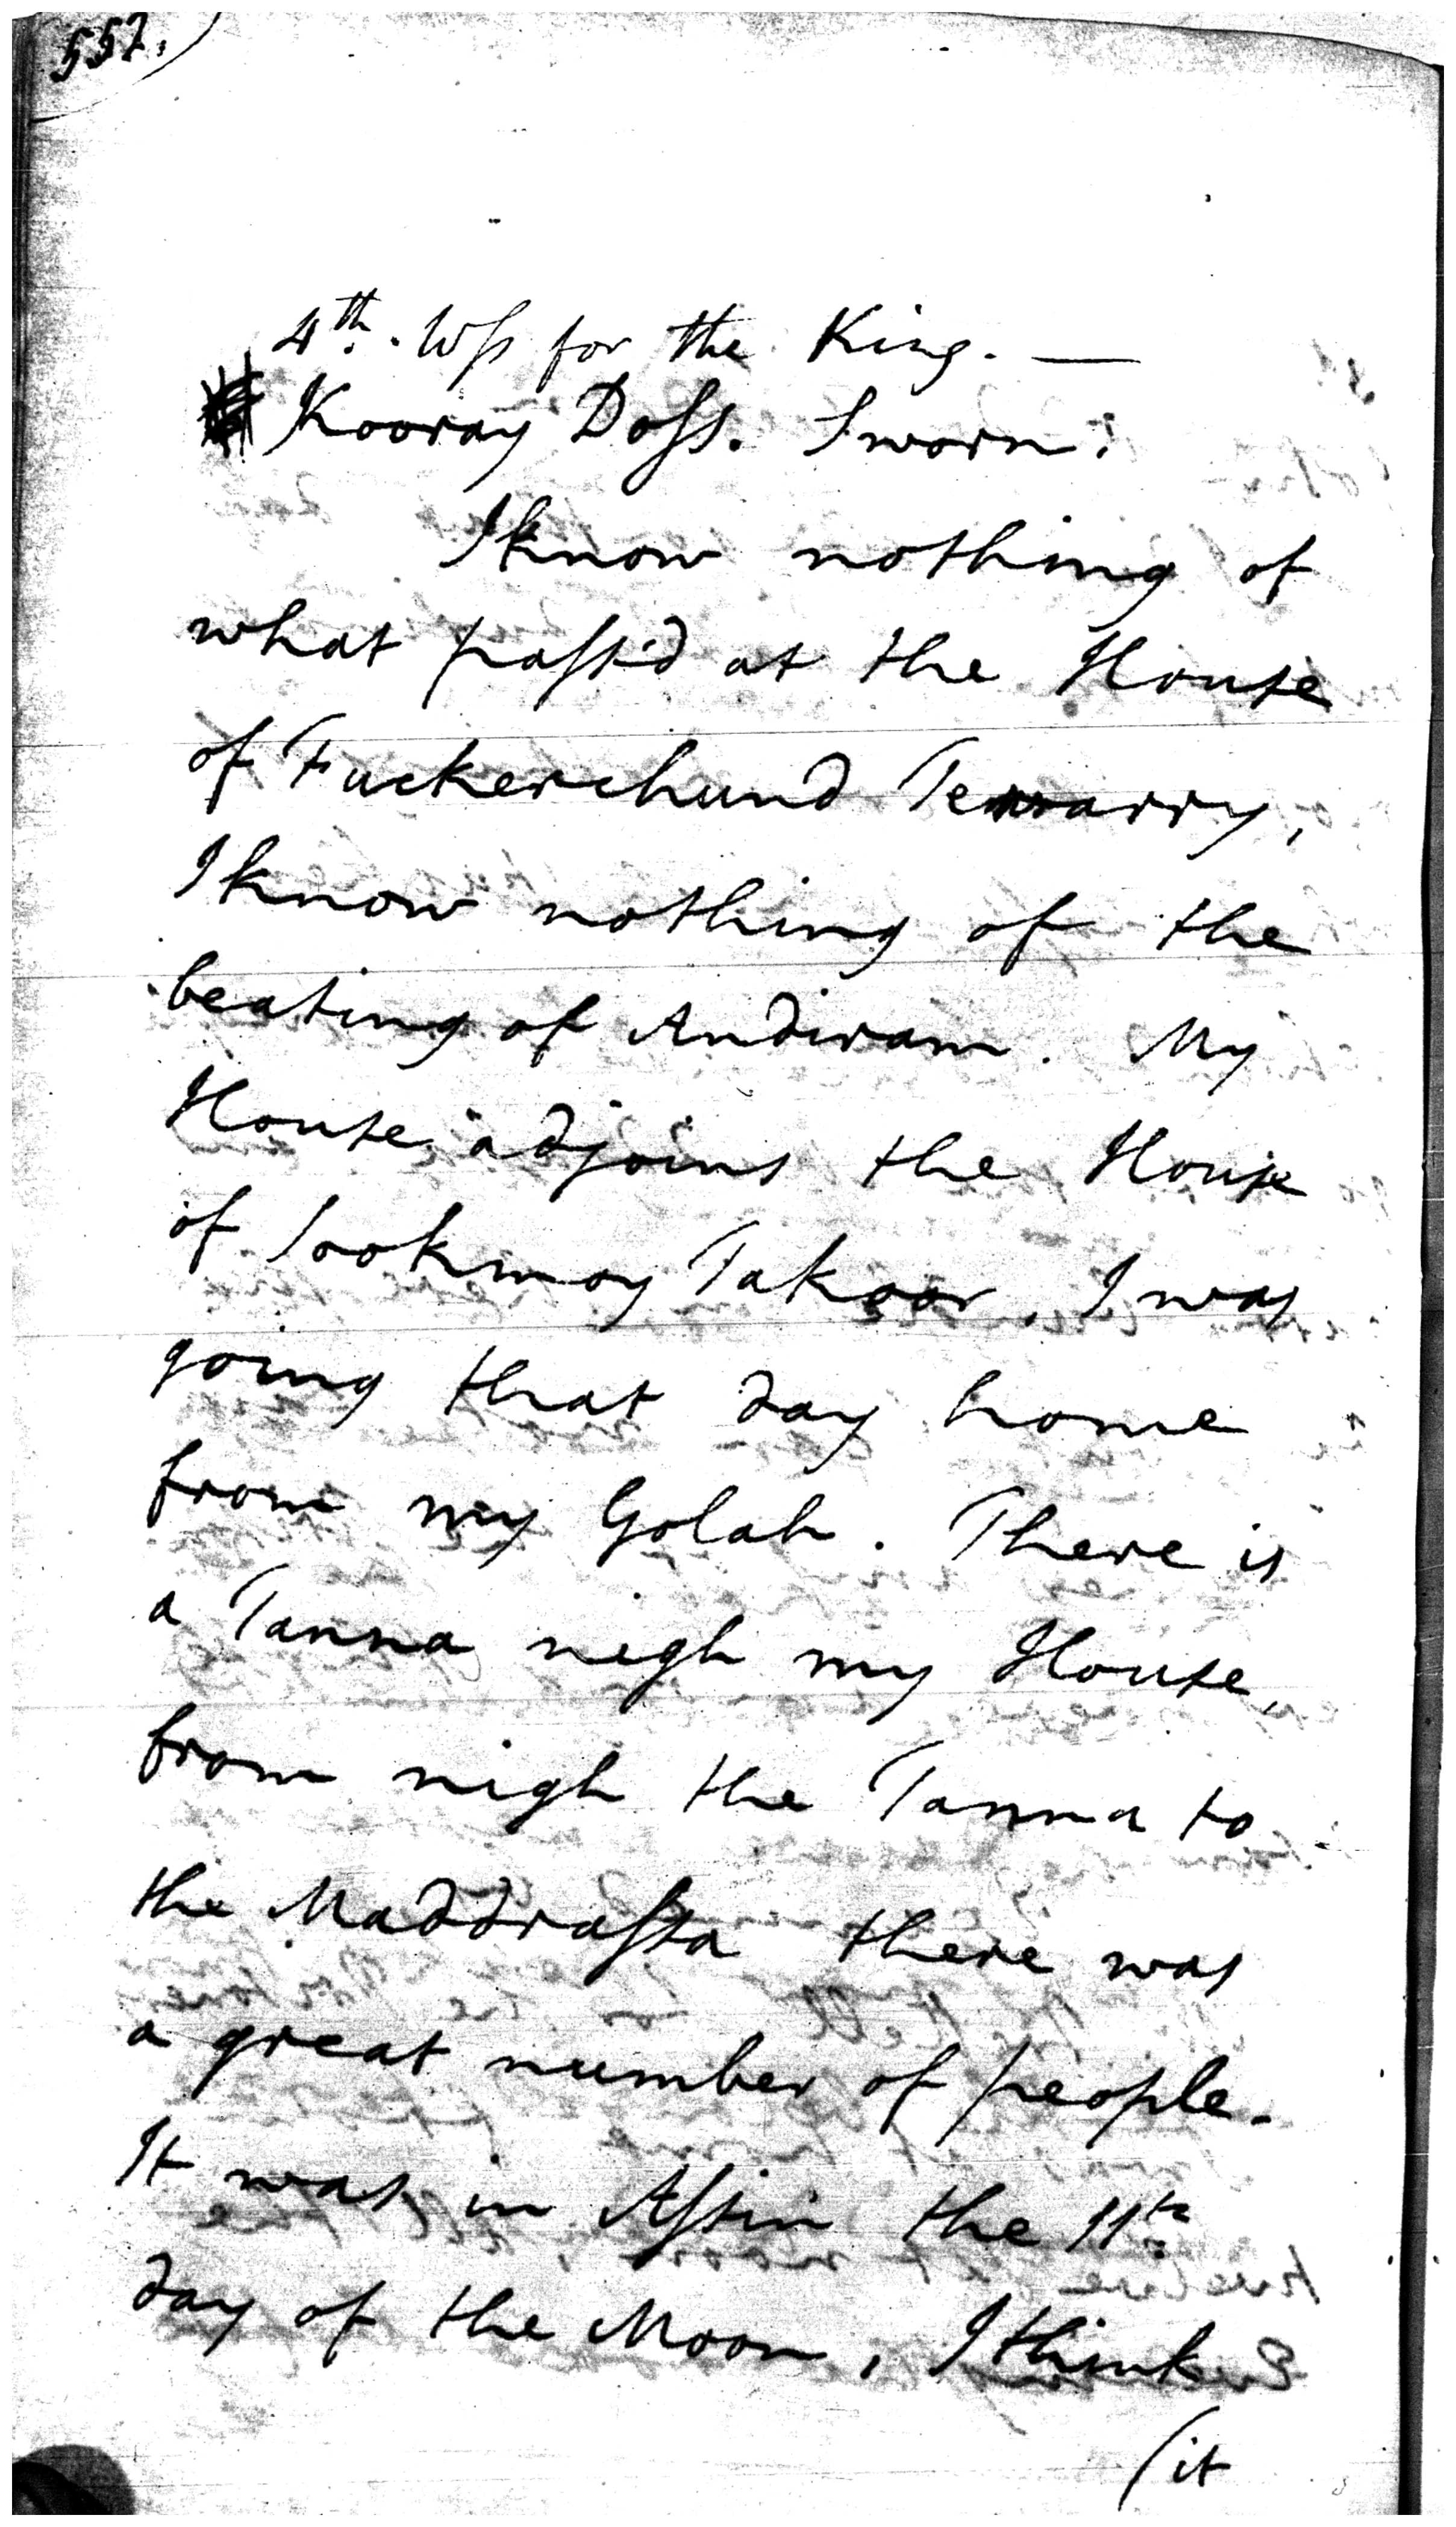 552.
4th. Wss for the King. —
Kooray Doss. Sworn.
I know nothing of
what pass'd at the House
of Fuckerchund Tewarry,
I know nothing of the
beating of Andiram. My
House adjoins the House
of Sookmoy Takoor. I was
going that day home
from my Golah. There is
a Tanna nigh my House,
from nigh the Tanna to
the Maddrassa there was
a great number of people.
It was in Assin the 11th
day of the Moon, I think
(it